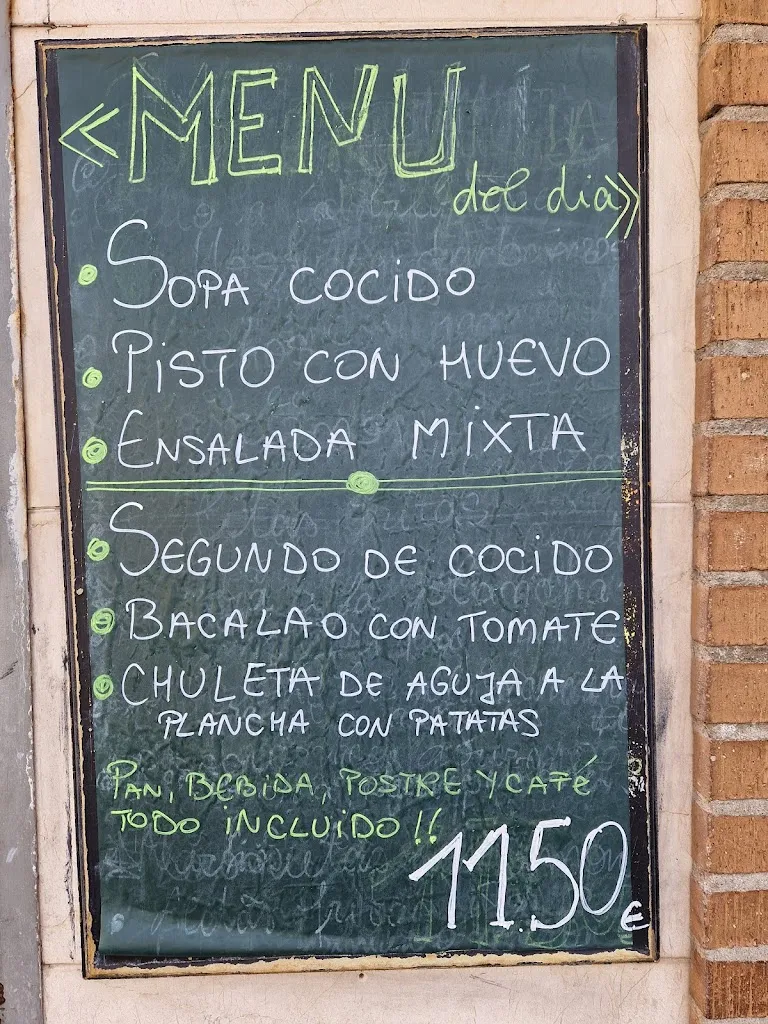 <<MENU
del dia>>
• SOPA COCIDO
• PISTO CON HUEVO
• ENSALADA MIXTA
• SEGUNDO DE COCIDO
• BACALAO CON TOMATE
• CHULETA DE AGUJA A LA
PLANCHA CON PATATAS
PAN, BEBIDA, POSTRE Y CAFÉ
TODO INCLUIDO!!
11.50€